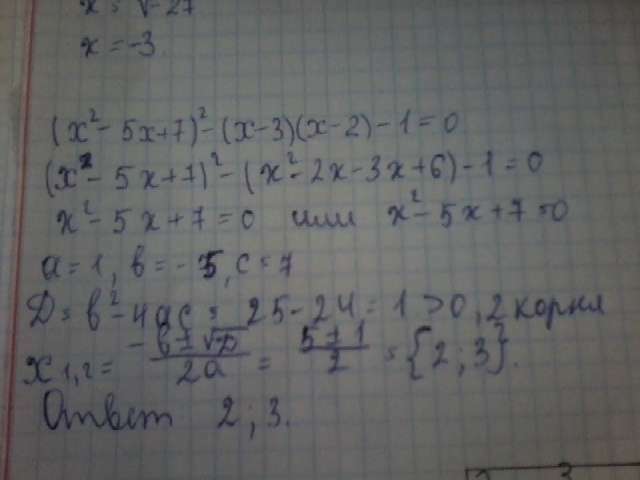 x = √-27
x = -3
(x² - 5x+7)² - (x-3)(x-2) - 1 = 0
(x² - 5x+7)² - (x² - 2x - 3x + 6) - 1 = 0
x² - 5x + 7 = 0 или x² - 5x + 7 = 0
a = 1, в = - 5, c = 7
D = в² - 4ac = 25 - 24 = 1 > 0, 2 корня
x₁,₂ = -в ± √D / 2a = 5 ± 1 / 2 = {2 ; 3}.
Ответ 2 ; 3.
3